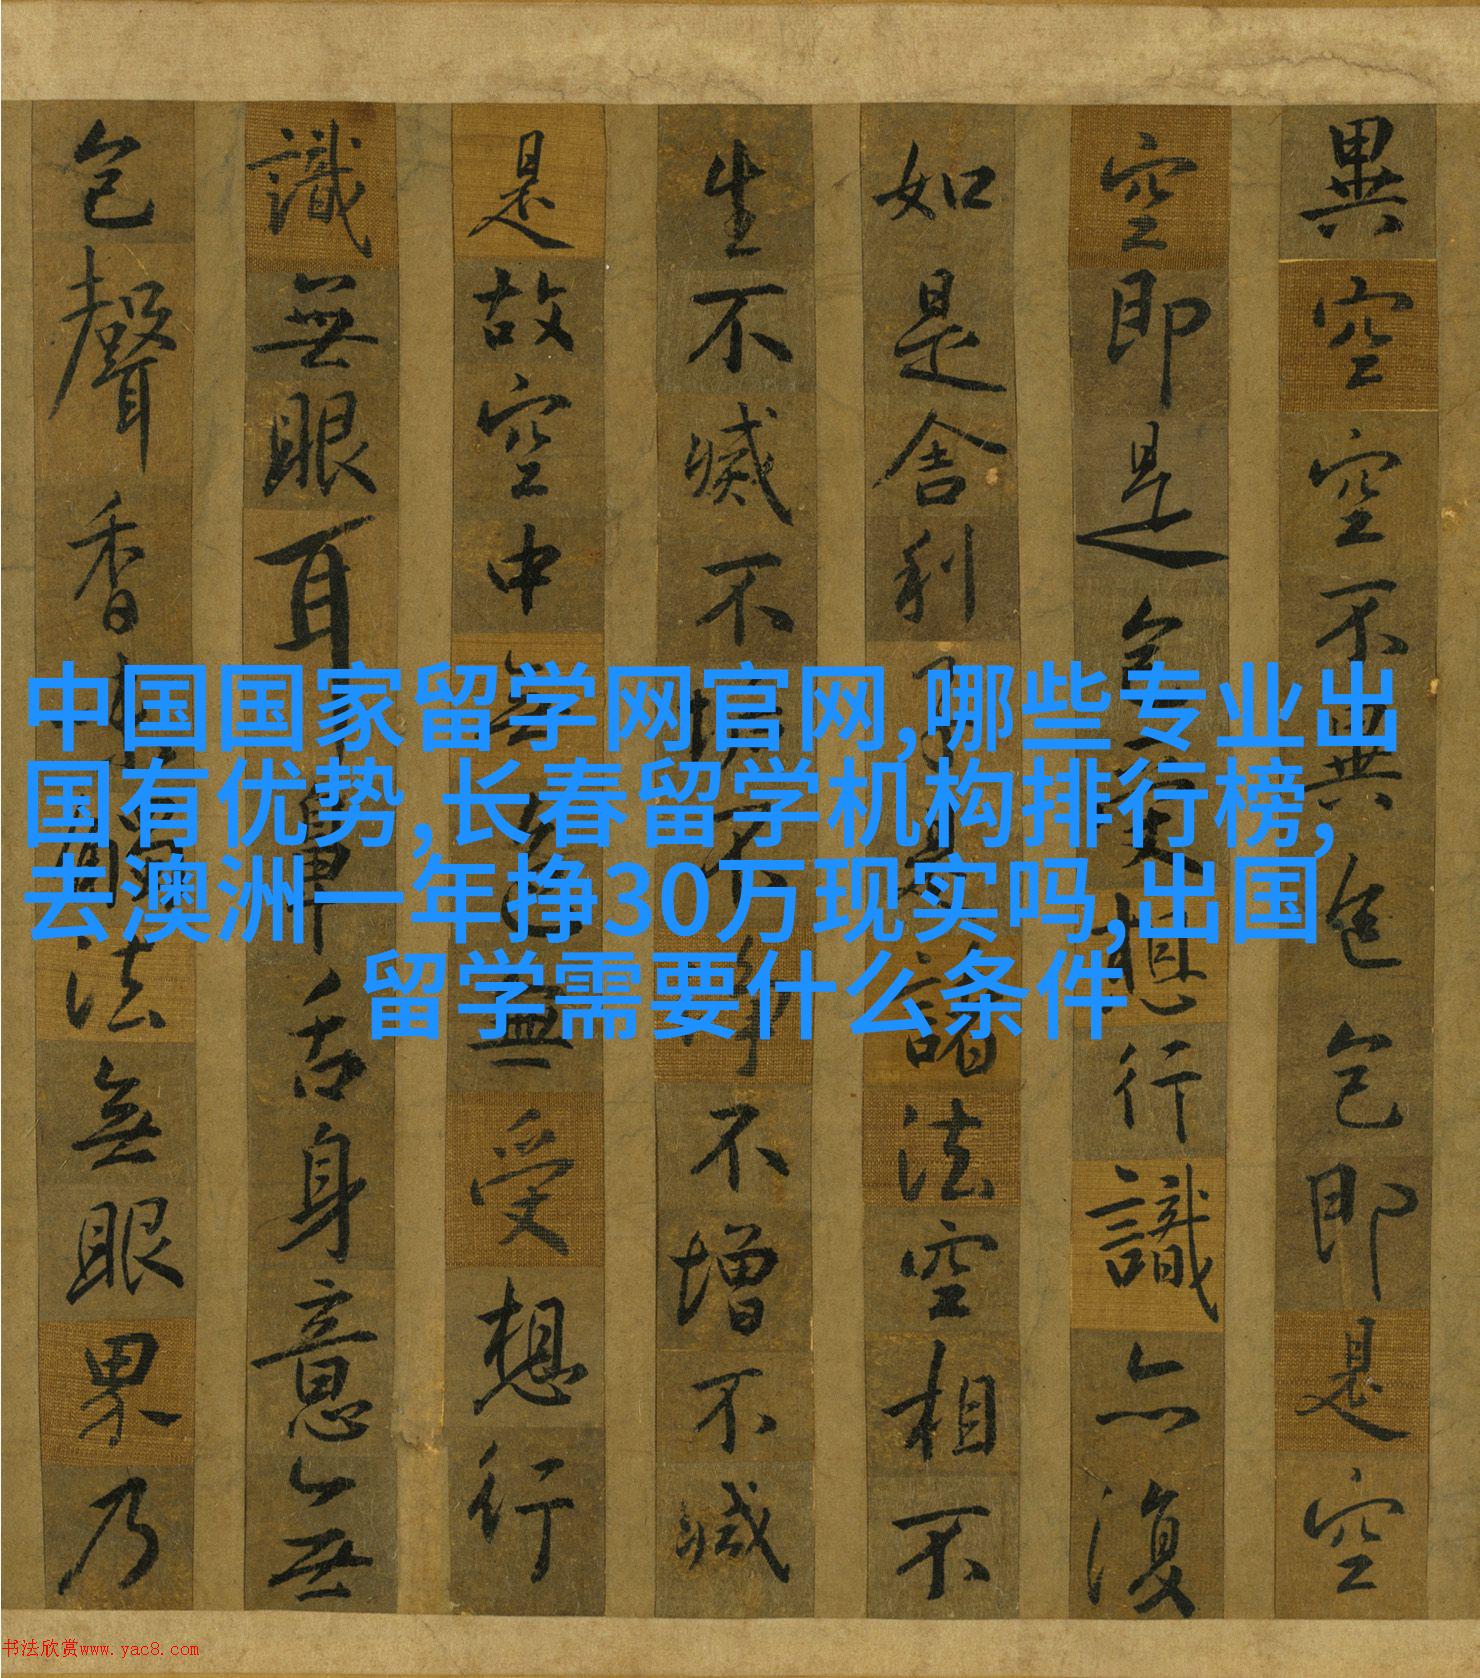 異空空不異色色即是空
空即是色受想行識亦復
如是舍利子是諸法空相不
生不滅不垢不淨不增不減
是故空中無色無受想行
識無眼耳鼻舌身意無
色聲香味觸法無眼界乃
中国国家留学网官网,哪些专业出
国有优势,长春留学机构排行榜,
去澳洲一年挣30万现实吗,出国
留学需要什么条件
书法欣赏www.yac8.com